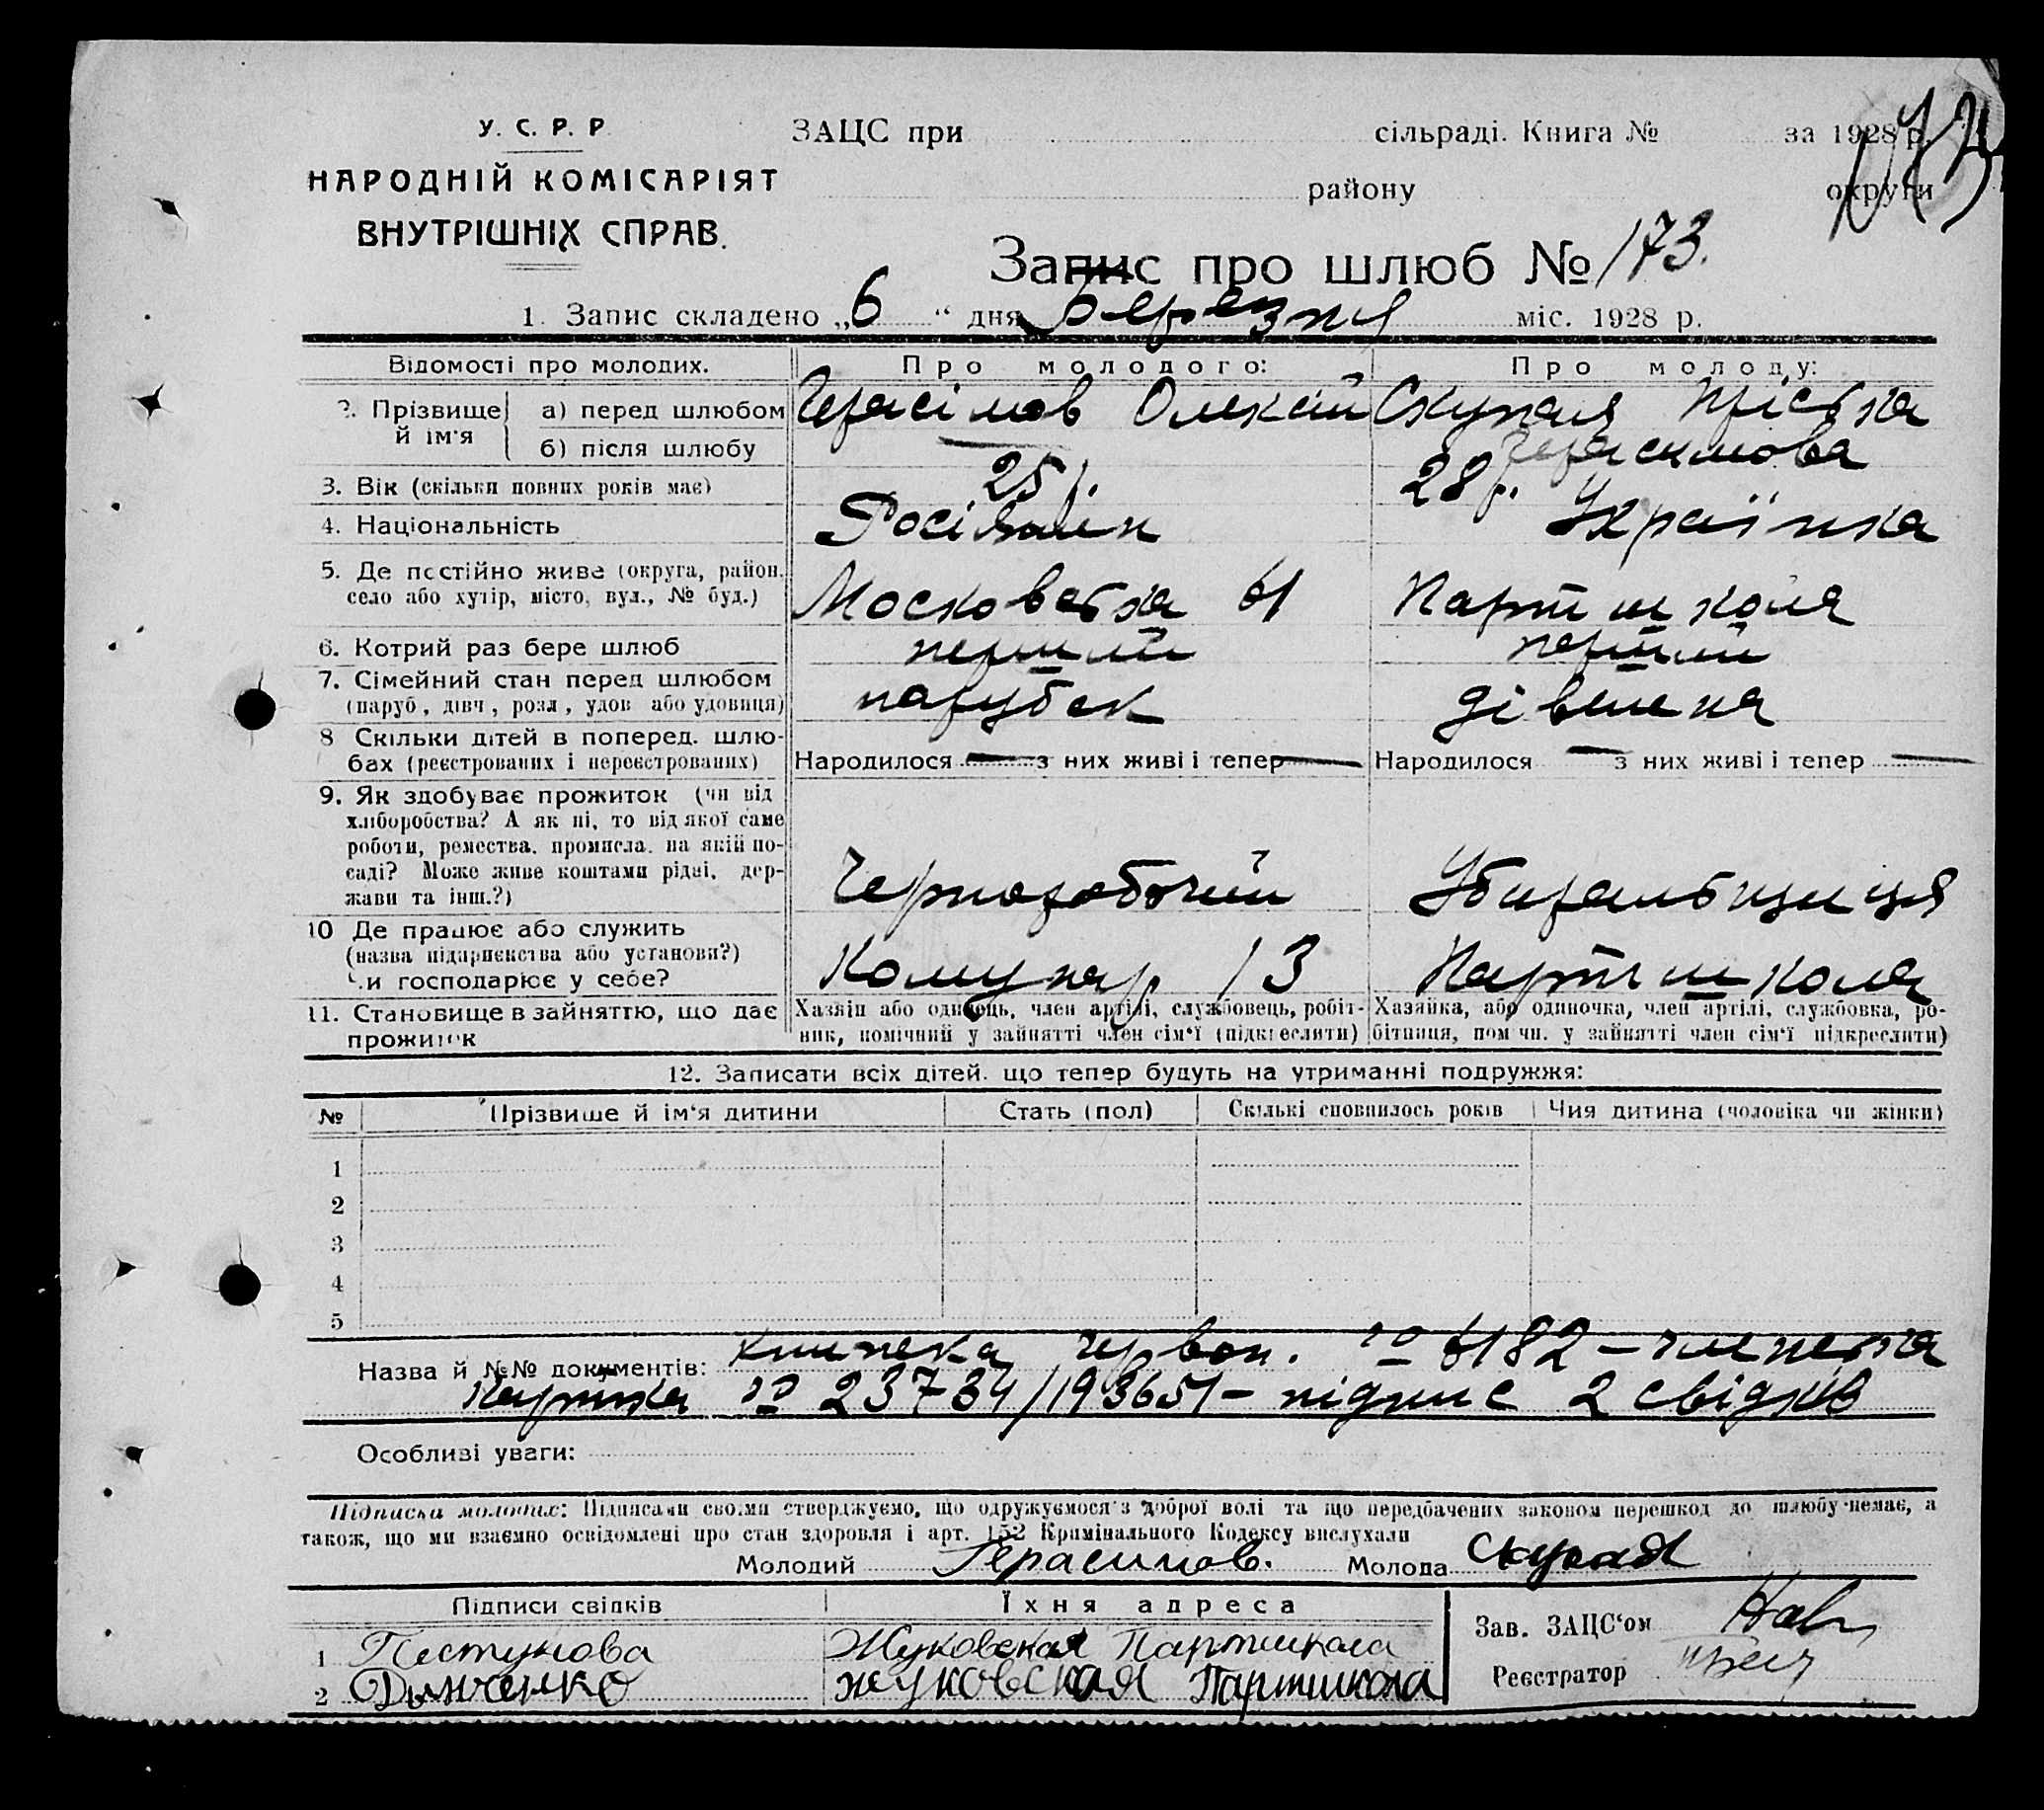 У. С. Р. Р.
НАРОДНІЙ КОМІСАРІЯТ
ВНУТРІШНІХ СПРАВ.
ЗАЦС при сільраді. Книга № за 1928 р.
району округи
Запис про шлюб № 173.
1. Запис складено „6“ дня Березня міс. 1928 р.
Відомості про молодих. Про молодого: Про молоду:
2. Прізвище й ім'я а) перед шлюбом Герасімов Олексій Скупая
б) після шлюбу — Герасимова
3. Вік (скільки повних років має) 25 р. 28 р.
4. Національність Росіянин Українка
5. Де постійно живе (округа, район, село або хутір, місто, вул., № буд.) Московська 61 Партшкола
6. Котрий раз бере шлюб перший перший
7. Сімейний стан перед шлюбом (паруб., дівч., розл., удов. або удовиця) парубок дівчена
8. Скільки дітей в поперед. шлюбах (реєстрованих і нереєстрованих) Народилося — з них живі і тепер — Народилося — з них живі і тепер —
9. Як здобуває прожиток (чи від хліборобства? А як ні, то від якої саме роботи, ремества, промисла, на якій посаді? Може живе коштами рідні, держави та інш.?) Чернорабочий Убиральщиця
10 Де працює або служить (назва підприємства або установи?) Чи господарює у себе? Комунар 13 Партшкола
11. Становище в зайняттю, що дає прожиток Хазяїн або одинець, член артілі, службовець, робітник, помічний у зайнятті член сім'ї (підкреслити) Хазяйка, або одиночка, член артілі, службовка, робітниця, помічн. у зайнятті член сім'ї підкреслити)
12. Записати всіх дітей, що тепер будуть на утриманні подружжя:
№ Прізвише й ім'я дитини Стать (пол) Скількі сповнилось років Чия дитина (чоловіка чи жінки)
1
2
3
4
5
Назва й №№ документів: книжка червон. № 6182 – членська
картка № 23734/193651 – підпис 2 свідків
Особливі уваги:
Підписка молодих: Підписами своїми стверджуємо, що одружуємося з доброї волі та що передбачених законом перешкод до шлюбу немає, а
також, що ми взаємно освідомлені про стан здоровля і арт. 152 Крамінального Кодексу вислухали
Молодий Герасимов. Молода Скупая
Підписи свідків Їхня адреса
1 Пестунова Жуковская Партшкола
2 Жуковская Партшкола
Зав. ЗАЦС'ом
Реєстратор